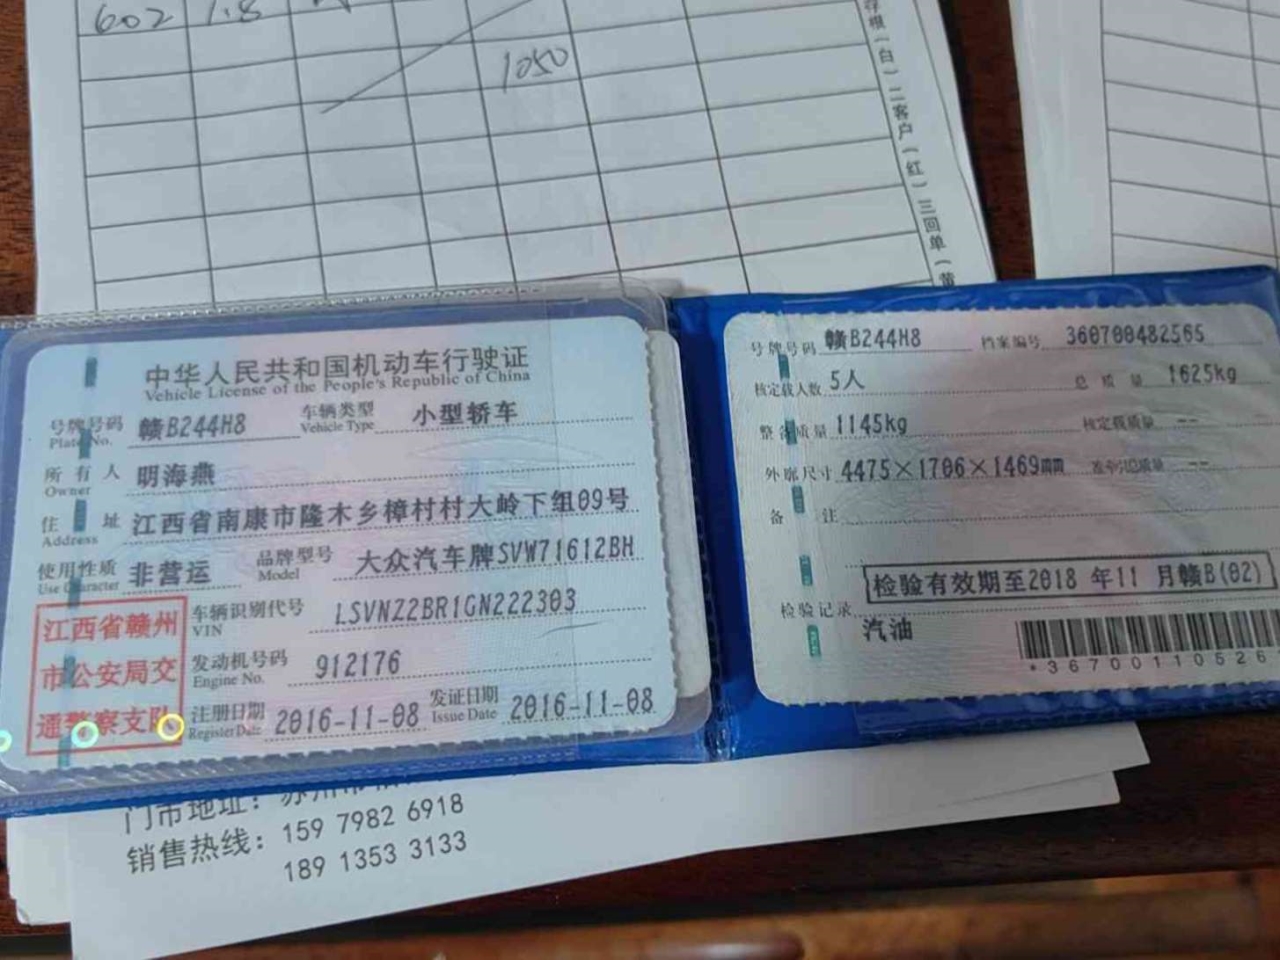 602 1.8
1050
存根(白)二客户(红)三回单(黄
中华人民共和国机动车行驶证
Vehicle License of the People's Republic of China
号牌号码 赣B244H8 车辆类型 小型轿车
Plate No. Vehicle Type
所有人 明海燕
Owner
住址 江西省南康市隆木乡樟村村大岭下组09号
Address
使用性质 非营运 品牌型号 大众汽车牌SVW71612BH
Use Character Model
江西省赣州
市公安局交
通警察支队
车辆识别代号 LSVNZ2BR1GN222303
VIN
发动机号码 912176
Engine No.
注册日期 2016-11-08 发证日期 2016-11-08
Register Date Issue Date
号牌号码 赣B244H8 档案编号 360700482565
核定载人数 5人 总质量 1625kg
整备质量 1145kg 核定载质量 --
外廓尺寸 4475×1706×1469mm 准牵引总质量 --
备注
检验有效期至2018 年11 月赣B(02)
检验记录
汽油
*36700110526
门市地址:苏州市
销售热线:159 7982 6918
189 1353 3133